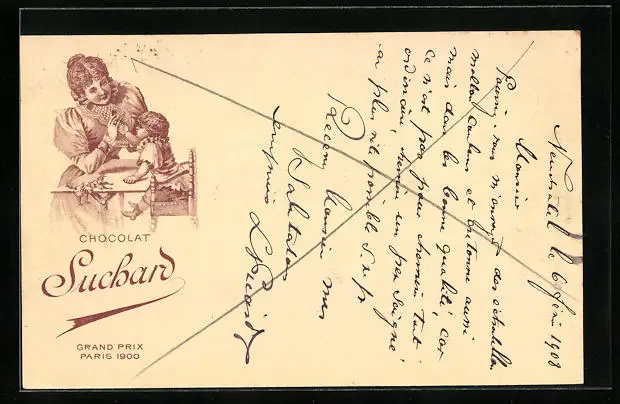 CHOCOLAT
Suchard
GRAND PRIX
PARIS 1900
Neuchâtel le 6 févr 1908
Monsieur
Pourriez vous m'envoyer des echantillon
couleurs et cretonne aussi
mais dans les bonne qualité, car
ce n'est pas pour tout
ordinaire, un peu soigné
au plus vite possible S.v.p.
Recevez Monsieur mes
Salutations